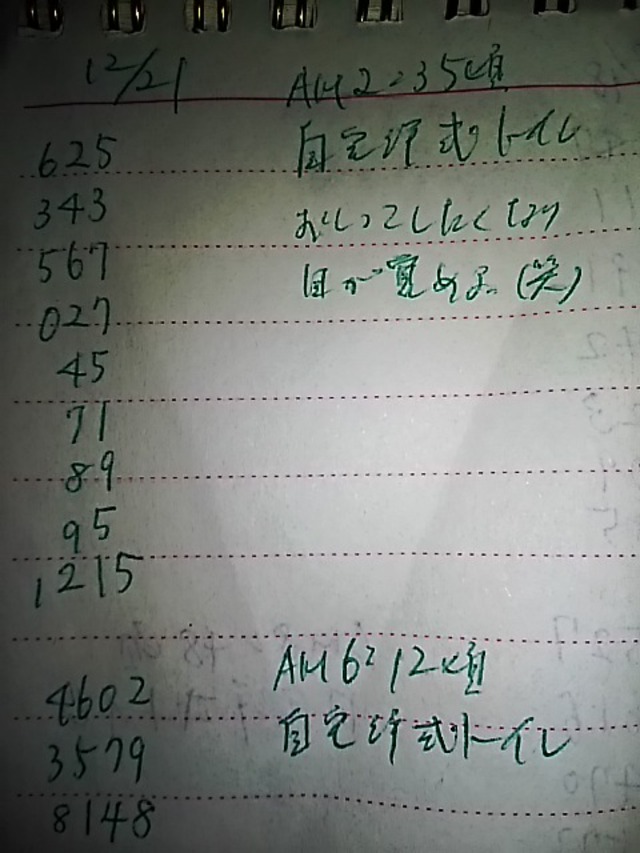 12/21 AM2:35頃
625 自宅洋式トイレ
343 おしっこしたくなり
567 目が覚める。(笑)
027
45
71
89
95
1215
AM6:12頃
4602
自宅洋式トイレ
3579
8148